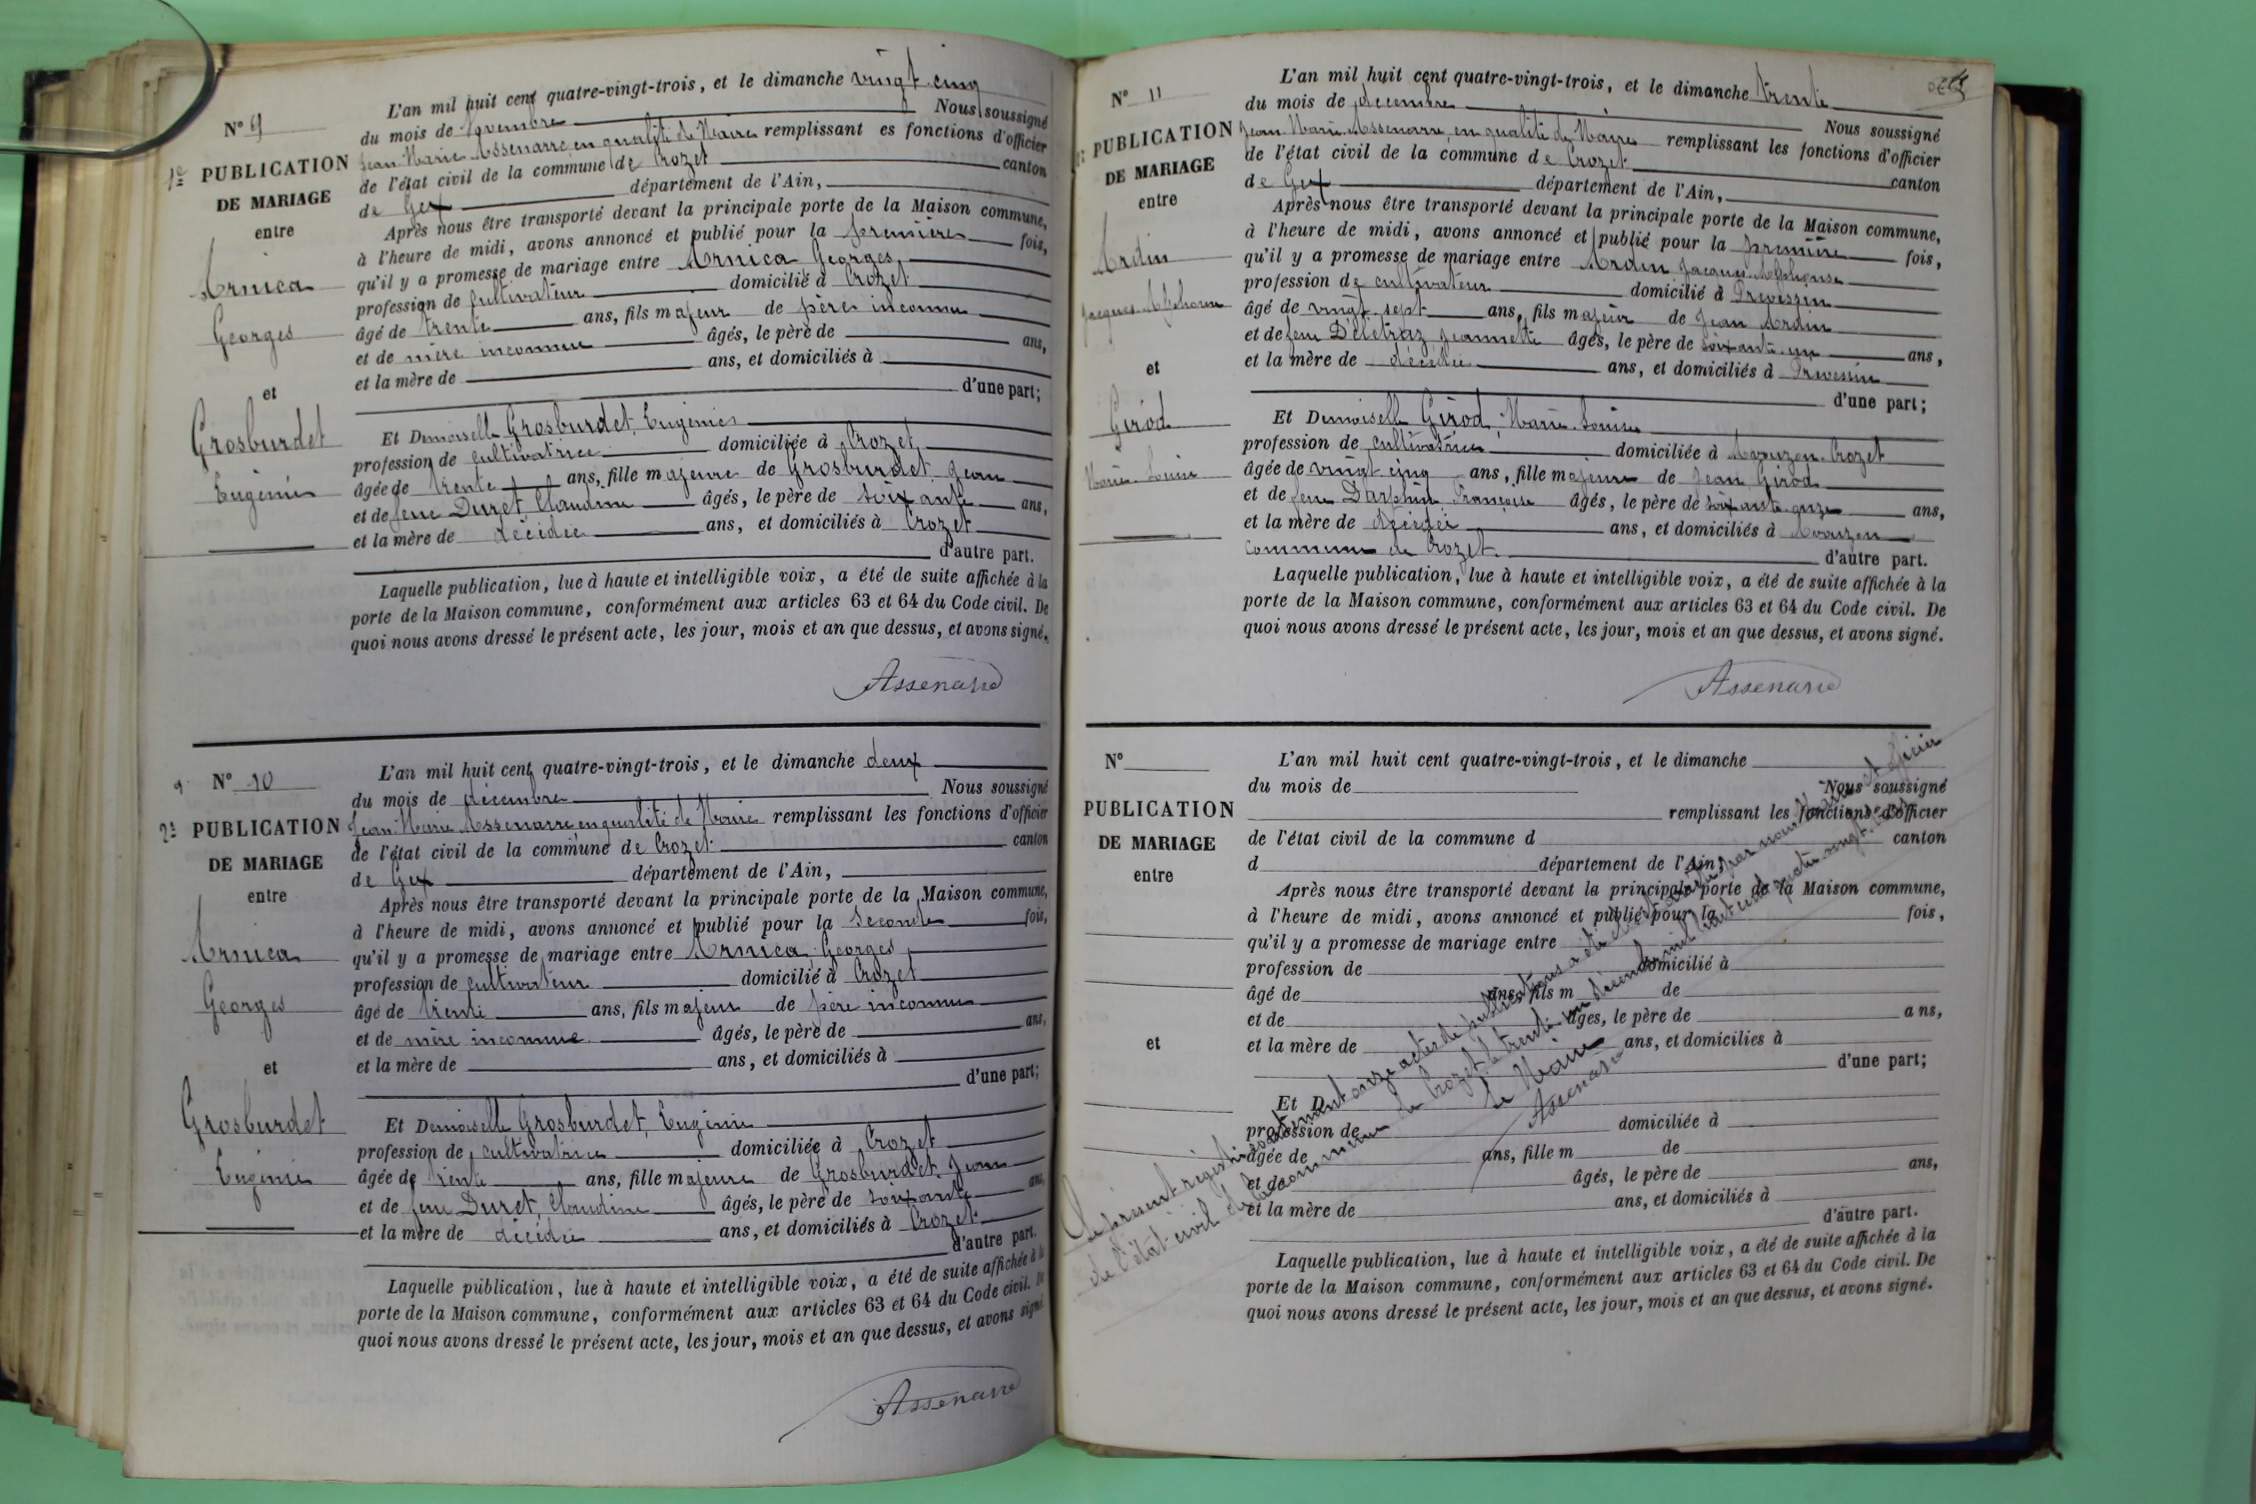 N° 9
1re PUBLICATION
DE MARIAGE
entre
Arnica
Georges
et
Grosburdet
Eugénie
L'an mil huit cent quatre-vingt-trois, et le dimanche vingt cinq
du mois de Novembre Nous soussigné
Jean Marie Assenarre, en qualité de Maire remplissant es fonctions d'officier
de l'état civil de la commune de Crozet canton
de Gex département de l'Ain,
Après nous être transporté devant la principale porte de la Maison commune,
à l'heure de midi, avons annoncé et publié pour la première fois,
qu'il y a promesse de mariage entre Arnica Georges,
profession de cultivateur domicilié à Crozet
âgé de trente ans, fils majeur de père inconnu
et de mère inconnue âgés, le père de ans,
et la mère de ans, et domiciliés à
d'une part;
Et Demoiselle Grosburdet, Eugénie
profession de cultivatrice domiciliée à Crozet
âgée de trente ans, fille majeure de Grosburdet, Jean
et de feue Duret, Claudine âgés, le père de soixante ans,
et la mère de décédée ans, et domiciliés à Crozet
d'autre part.
Laquelle publication, lue à haute et intelligible voix, a été de suite affichée à la
porte de la Maison commune, conformément aux articles 63 et 64 du Code civil. De
quoi nous avons dressé le présent acte, les jour, mois et an que dessus, et avons signé.
Assenarre
N° 10
2e PUBLICATION
DE MARIAGE
entre
Arnica
Georges
et
Grosburdet
Eugénie
L'an mil huit cent quatre-vingt-trois, et le dimanche deux
du mois de décembre Nous soussigné
Jean Marie Assenarre, en qualité de Maire remplissant les fonctions d'officier
de l'état civil de la commune de Crozet canton
de Gex département de l'Ain,
Après nous être transporté devant la principale porte de la Maison commune,
à l'heure de midi, avons annoncé et publié pour la seconde fois,
qu'il y a promesse de mariage entre Arnica, Georges,
profession de cultivateur domicilié à Crozet
âgé de trente ans, fils majeur de père inconnu
et de mère inconnue âgés, le père de ans,
et la mère de ans, et domiciliés à
d'une part;
Et Demoiselle Grosburdet, Eugénie
profession de cultivatrice domiciliée à Crozet
âgée de trente ans, fille majeure de Grosburdet Jean
et de feue Duret, Claudine âgés, le père de soixante ans,
et la mère de décédée ans, et domiciliés à Crozet
d'autre part.
Laquelle publication, lue à haute et intelligible voix, a été de suite affichée à la
porte de la Maison commune, conformément aux articles 63 et 64 du Code civil. De
quoi nous avons dressé le présent acte, les jour, mois et an que dessus, et avons signé
Assenarre
N° 11
PUBLICATION
DE MARIAGE
entre
Ardin
Jacques Alphonse
et
Girod
Marie Louise
L'an mil huit cent quatre-vingt-trois, et le dimanche trente
du mois de décembre Nous soussigné
Jean Marie Assenarre, en qualité de Maire remplissant les fonctions d'officier
de l'état civil de la commune de Crozet canton
de Gex département de l'Ain,
Après nous être transporté devant la principale porte de la Maison commune,
à l'heure de midi, avons annoncé et publié pour la première fois,
qu'il y a promesse de mariage entre Ardin Jacques Alphonse
profession de cultivateur domicilié à Prevessin
âgé de vingt sept ans, fils majeur de Jean Ardin
et de feue Délétraz Jeannette âgés, le père de soixante un ans,
et la mère de décédée ans, et domiciliés à Prevessin
d'une part;
Et Demoiselle Girod, Marie Louise
profession de cultivatrice domiciliée à Avouzon Crozet
âgée de vingt cinq ans, fille majeure de Jean Girod
et de feue Darphin Françoise âgés, le père de soixante onze ans,
et la mère de décédée ans, et domiciliés à Avouzon
commune de Crozet d'autre part.
Laquelle publication, lue à haute et intelligible voix, a été de suite affichée à la
porte de la Maison commune, conformément aux articles 63 et 64 du Code civil. De
quoi nous avons dressé le présent acte, les jour, mois et an que dessus, et avons signé.
Assenarre
N°
PUBLICATION
DE MARIAGE
entre
et
L'an mil huit cent quatre-vingt-trois, et le dimanche
du mois de Nous soussigné
remplissant les fonctions d'officier
de l'état civil de la commune d canton
d département de l'Ain,
Après nous être transporté devant la principale porte de la Maison commune,
à l'heure de midi, avons annoncé et publié pour la fois,
qu'il y a promesse de mariage entre
profession de domicilié à
âgé de ans, fils m de
et de âgés, le père de ans,
et la mère de ans, et domiciliés à
d'une part;
Et D
profession de domiciliée à
âgée de ans, fille m de
et de âgés, le père de ans,
et la mère de ans, et domiciliés à
d'autre part.
Laquelle publication, lue à haute et intelligible voix, a été de suite affichée à la
porte de la Maison commune, conformément aux articles 63 et 64 du Code civil. De
quoi nous avons dressé le présent acte, les jour, mois et an que dessus, et avons signé.
Le présent registre contenant onze actes de publications a été clos et arrêté par nous Maire et officier
de l'état civil de la commune de Crozet le trente un décembre mil huit cent quatre vingt trois
Le Maire
Assenarre